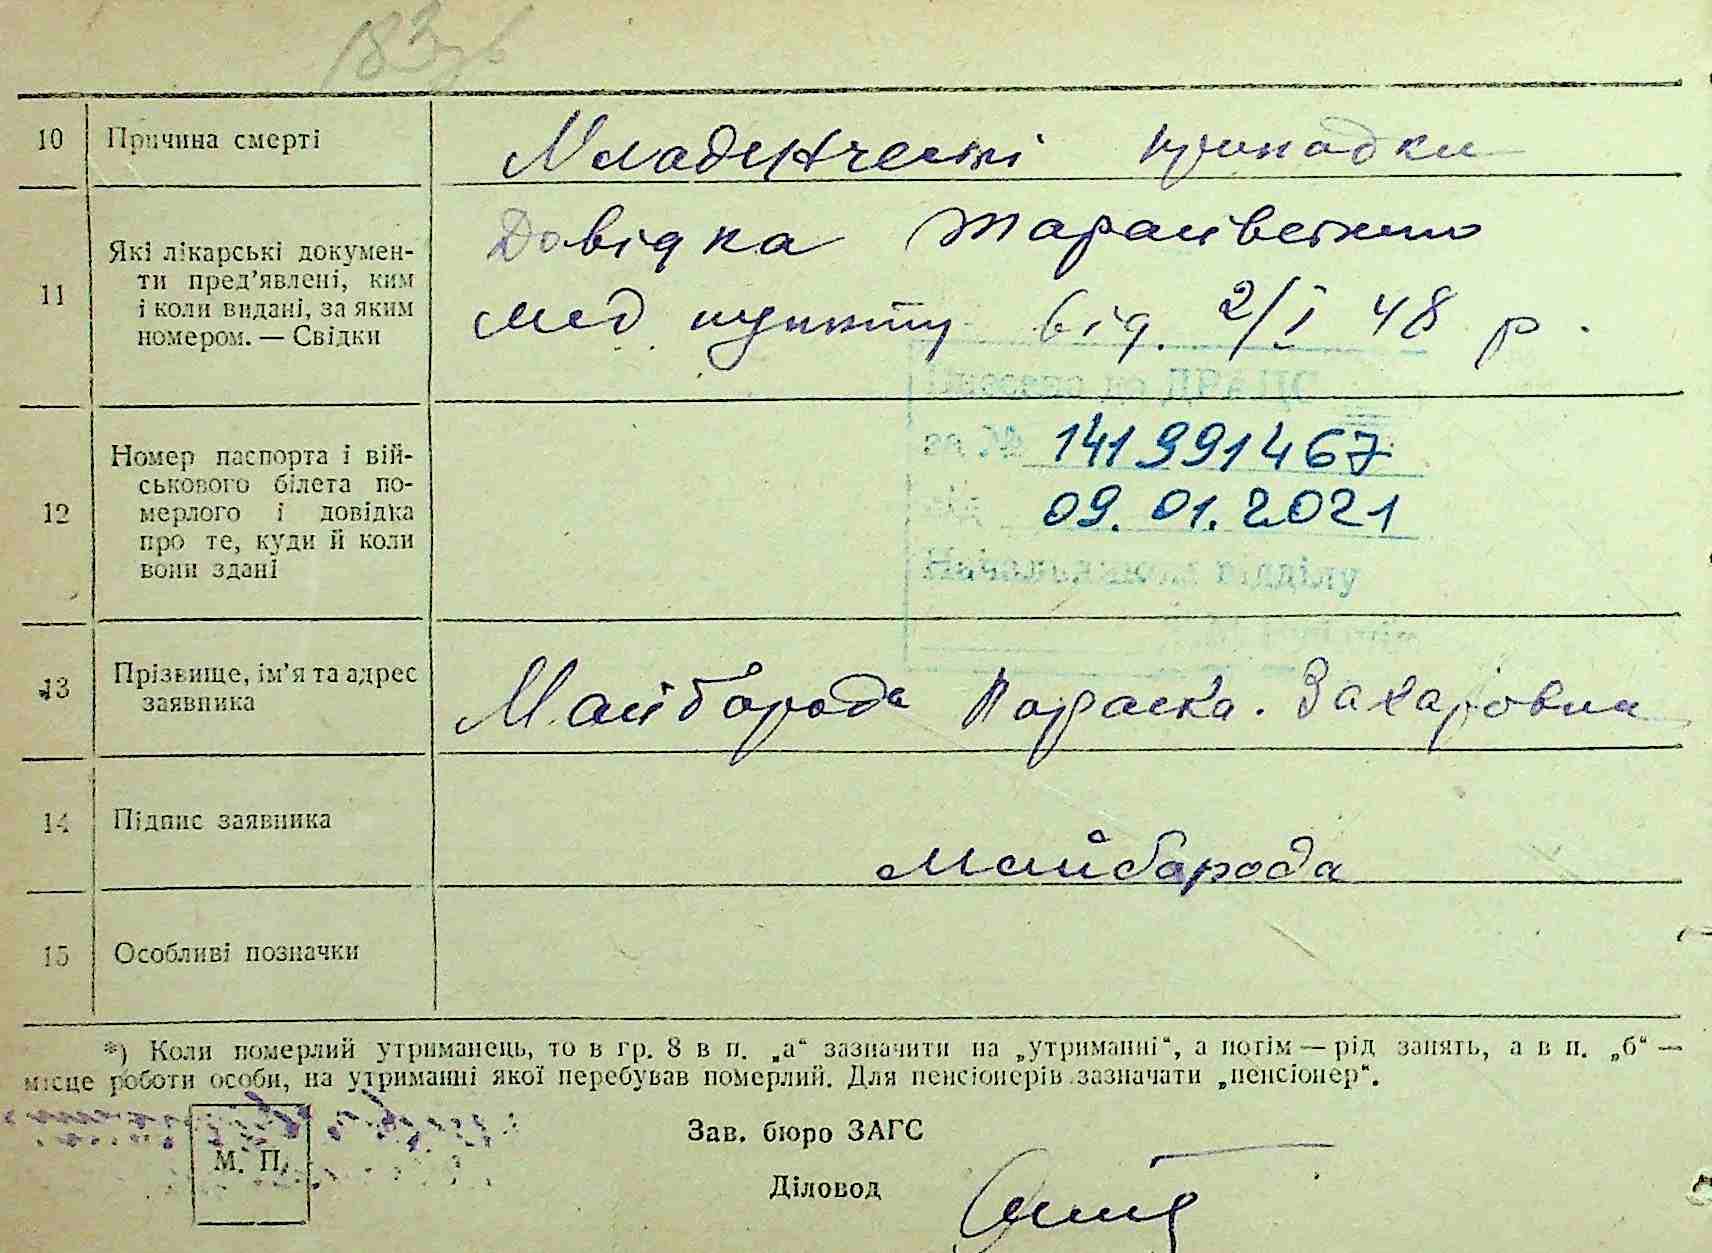 10 Причина смерті
Младенческі припадки
11 Які лікарські докумен-
ти пред'явлені, ким
і коли видані, за яким
номером. — Свідки
Довідка
мед пункту від 2/I 48 р.
12 Номер паспорта і вій-
ськового білета по-
мерлого і довідка
про те, куди й коли
вони здані
Внесено до ДРАЦС
за № 141991467
від 09.01.2021
Начальник відділу
13 Прізвище, ім'я та адрес
заявника
Майборода Параска. Захаровна
14 Підпис заявника
Майборода
15 Особливі позначки
*) Коли померлий утриманець, то в гр. 8 в п. „а“ зазначити на „утриманні“, а потім — рід занять, а в п. „б“ —
місце роботи особи, на утриманні якої перебував померлий. Для пенсіонерів зазначати „пенсіонер“.
М. П.
Зав. бюро ЗАГС
Діловод